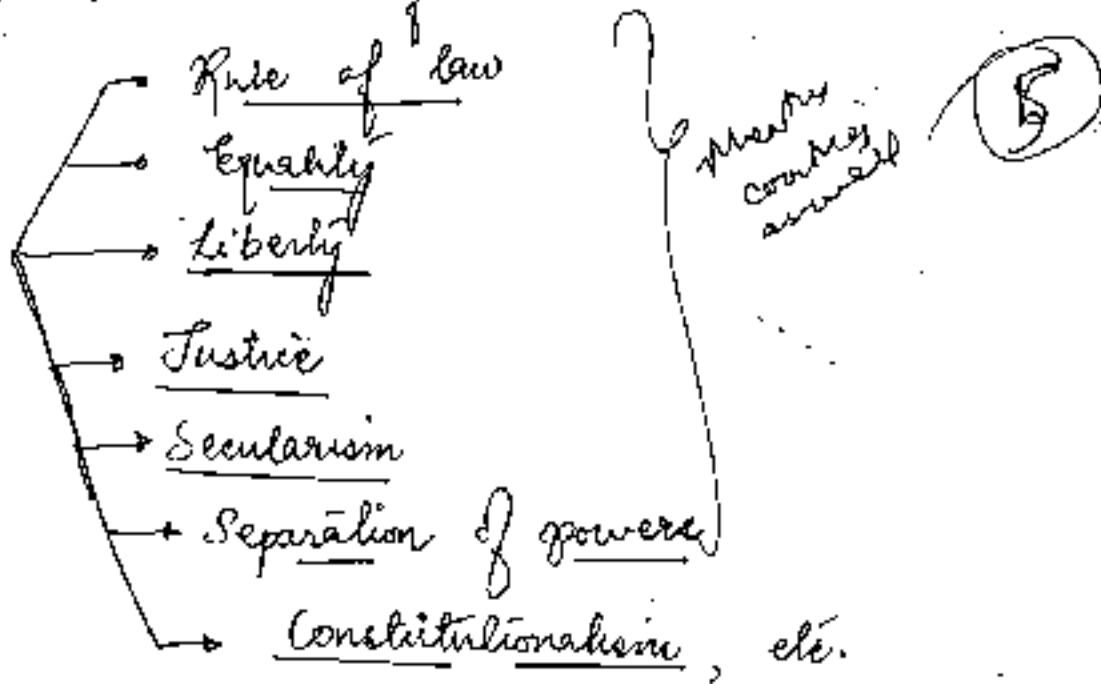 Rule of law
Equality
Liberty
Justice
Secularism
Separation of powers
Constitutionalism, etc.
countries
5